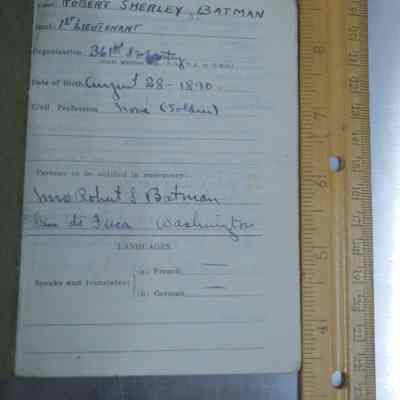 Name: ROBERT SHERLEY BATMAN
Rank: 1st LIEUTENANT
Organization 361st Infantry
Date of Birth August 28 - 1890
Civil Profession None (Soldier)
Persons to be notified in emergency:
Mrs Robert S Batman
de Fuca Washington
LANGUAGES
Speaks and translates:
(a) French
(b) German
8
7
6
5
4